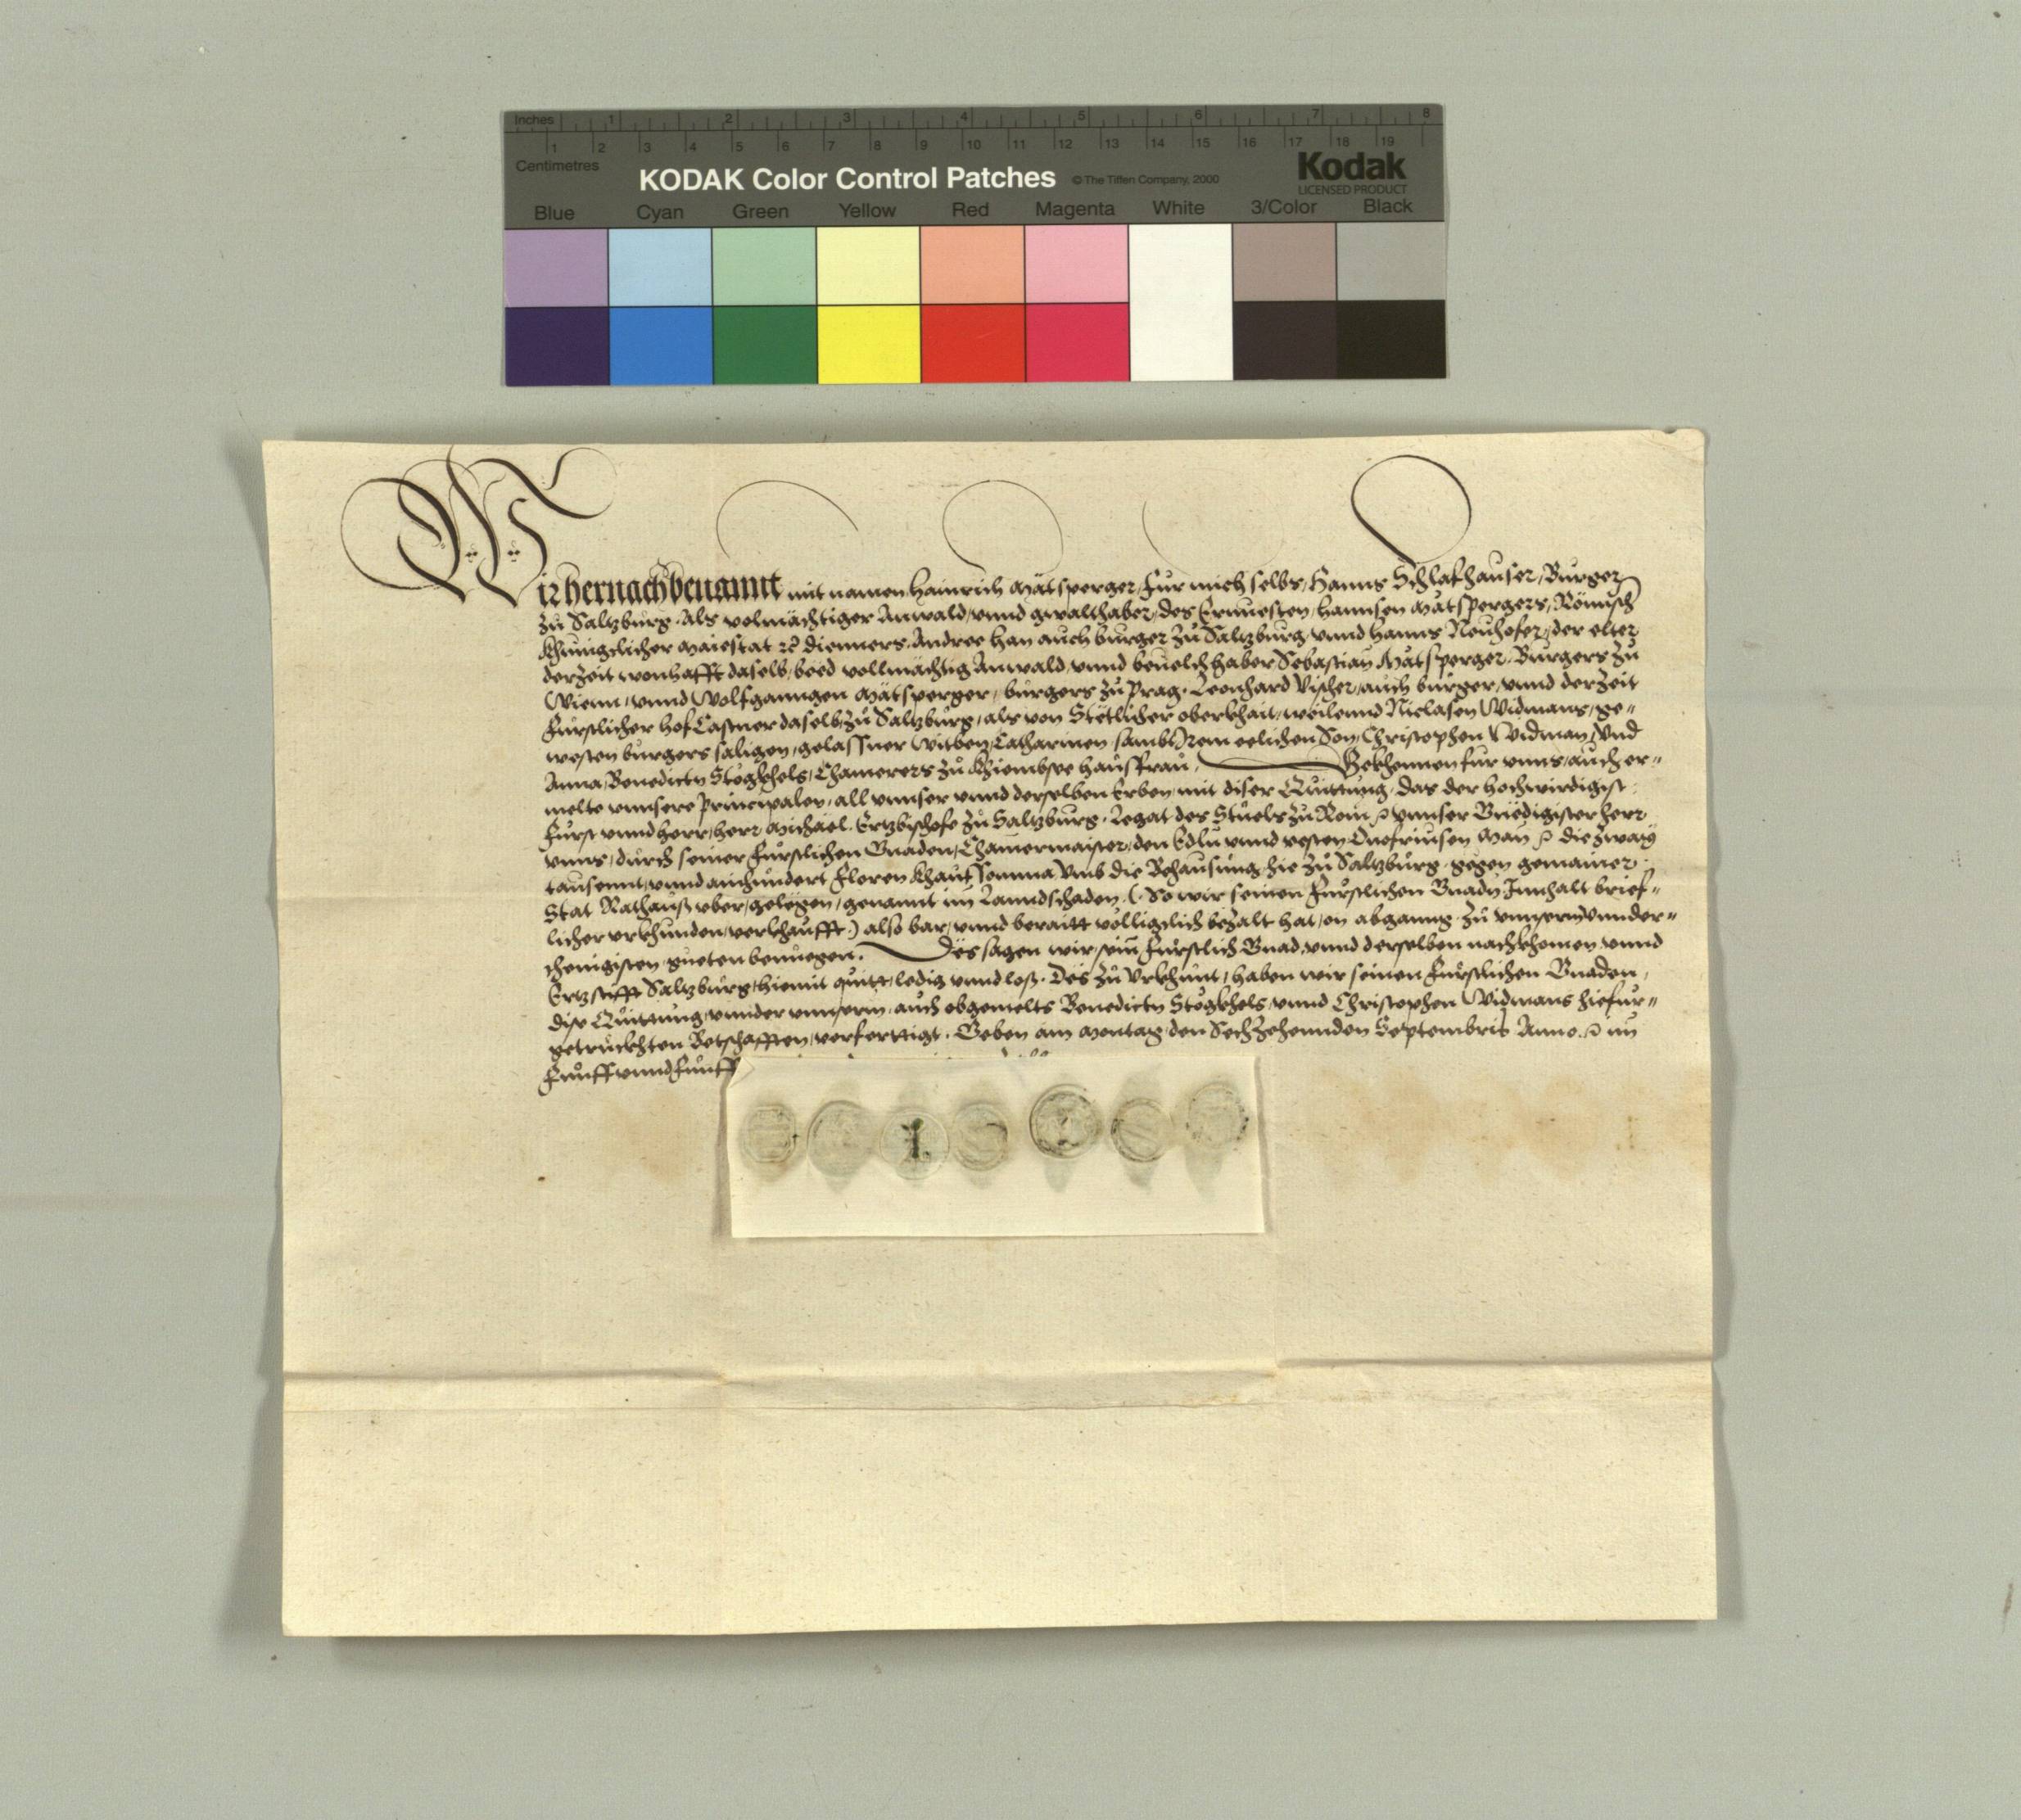 Inches 1 2 3 4 5 6 7 8
1 2 3 4 5 6 7 8 9 10 11 12 13 14 15 16 17 18 19
Centimetres
KODAK Color Control Patches © The Tiffen Company, 2000 Kodak
LICENSED PRODUCT
Blue Cyan Green Yellow Red Magenta White 3/Color Black
Wir hernachbenannt mit namen Hainrich Mätsperger, für mich selbs, Hanns Schlakhauser, Burger
zu Saltzburg. Als volmächtiger Anwald, vnnd gwalthaber, des Ernuesten, Hannsen Mätspergers, Römisch
Khünigclicher Maiestat ꝛc̃ dienners. Andree Han auch burger zu Saltzburg, vnnd Hanns Neuhofer, der elter
derzeit wonhafft daselb, beed vollmächtig Anwald, vnnd beuelchhaber Sebastian Mätsperger, Burgers zu
Wienn, vnnd Wolfganngen Mätsperger, burgers zu Prag. Leonhard Vischer, auch burger, vnnd derzeit
Fürstlicher hof Castner daselb zu Saltzburg, als von Stetlicher oberkhait, weilennd Niclasen Widmans, ge=
westen burgers saligen, gelassner Witben, Catharinen sambt Irem eelichen Son, Christophen Widman, Vnd
Anna, Benedictn Stögkhels, Chamerers zu Khiembsee hausfrau. Bekhennen für vnns, auch er=
melte vnnsere Principalen, all vnnser vnnd derselben Erben, mit diser Quittung. Das der hochwirdigist
Fürst vnnd herr, herr Michael. Ertzbischofe zu Saltzburg. Legat des Stuels zu Rom ꝛc vnnser Gnedigister herr
vnns, durch seiner Fürstlichen Gnaden, Chamermaister, den Edln vnnd vesten Onofriusen Man ꝛc die zway
tausennt, vnnd ainhundert Floren Khauf Somma Vmb die Behausung, hie zu Saltzburg gegen gemainer
Stat Rathauss vber, gelegen, genannt im Lanndschaden (So wir seinen Fürstlichen Gnadn Innhalt brief=
licher vrkhunden, verkhaufft) also bar, vnnd beraitt völligclich bezalt hat, on abganng. zu vnnserm vnnder=
thenigisten, gueten benuegen. Des sagen wir, sein Fürstlich Gnad, vnnd derselben nachkhomen, vnnd
Ertzstifft Saltzburg, hiemit quitt, ledig vnnd loss. Des zu Vrkhunt, haben wir seinen Fürstlichen Gnaden,
dise Quittung, vnnder vnnsern, auch obgemelts Benedictn Stögkhels, vnnd Christophen Widmans hiefür=
getruckhten Betschafften, verferttigt. Geben am Montag, den Sechzehennden Septembris Anno ꝛc im
Fünff vnnd Fünff